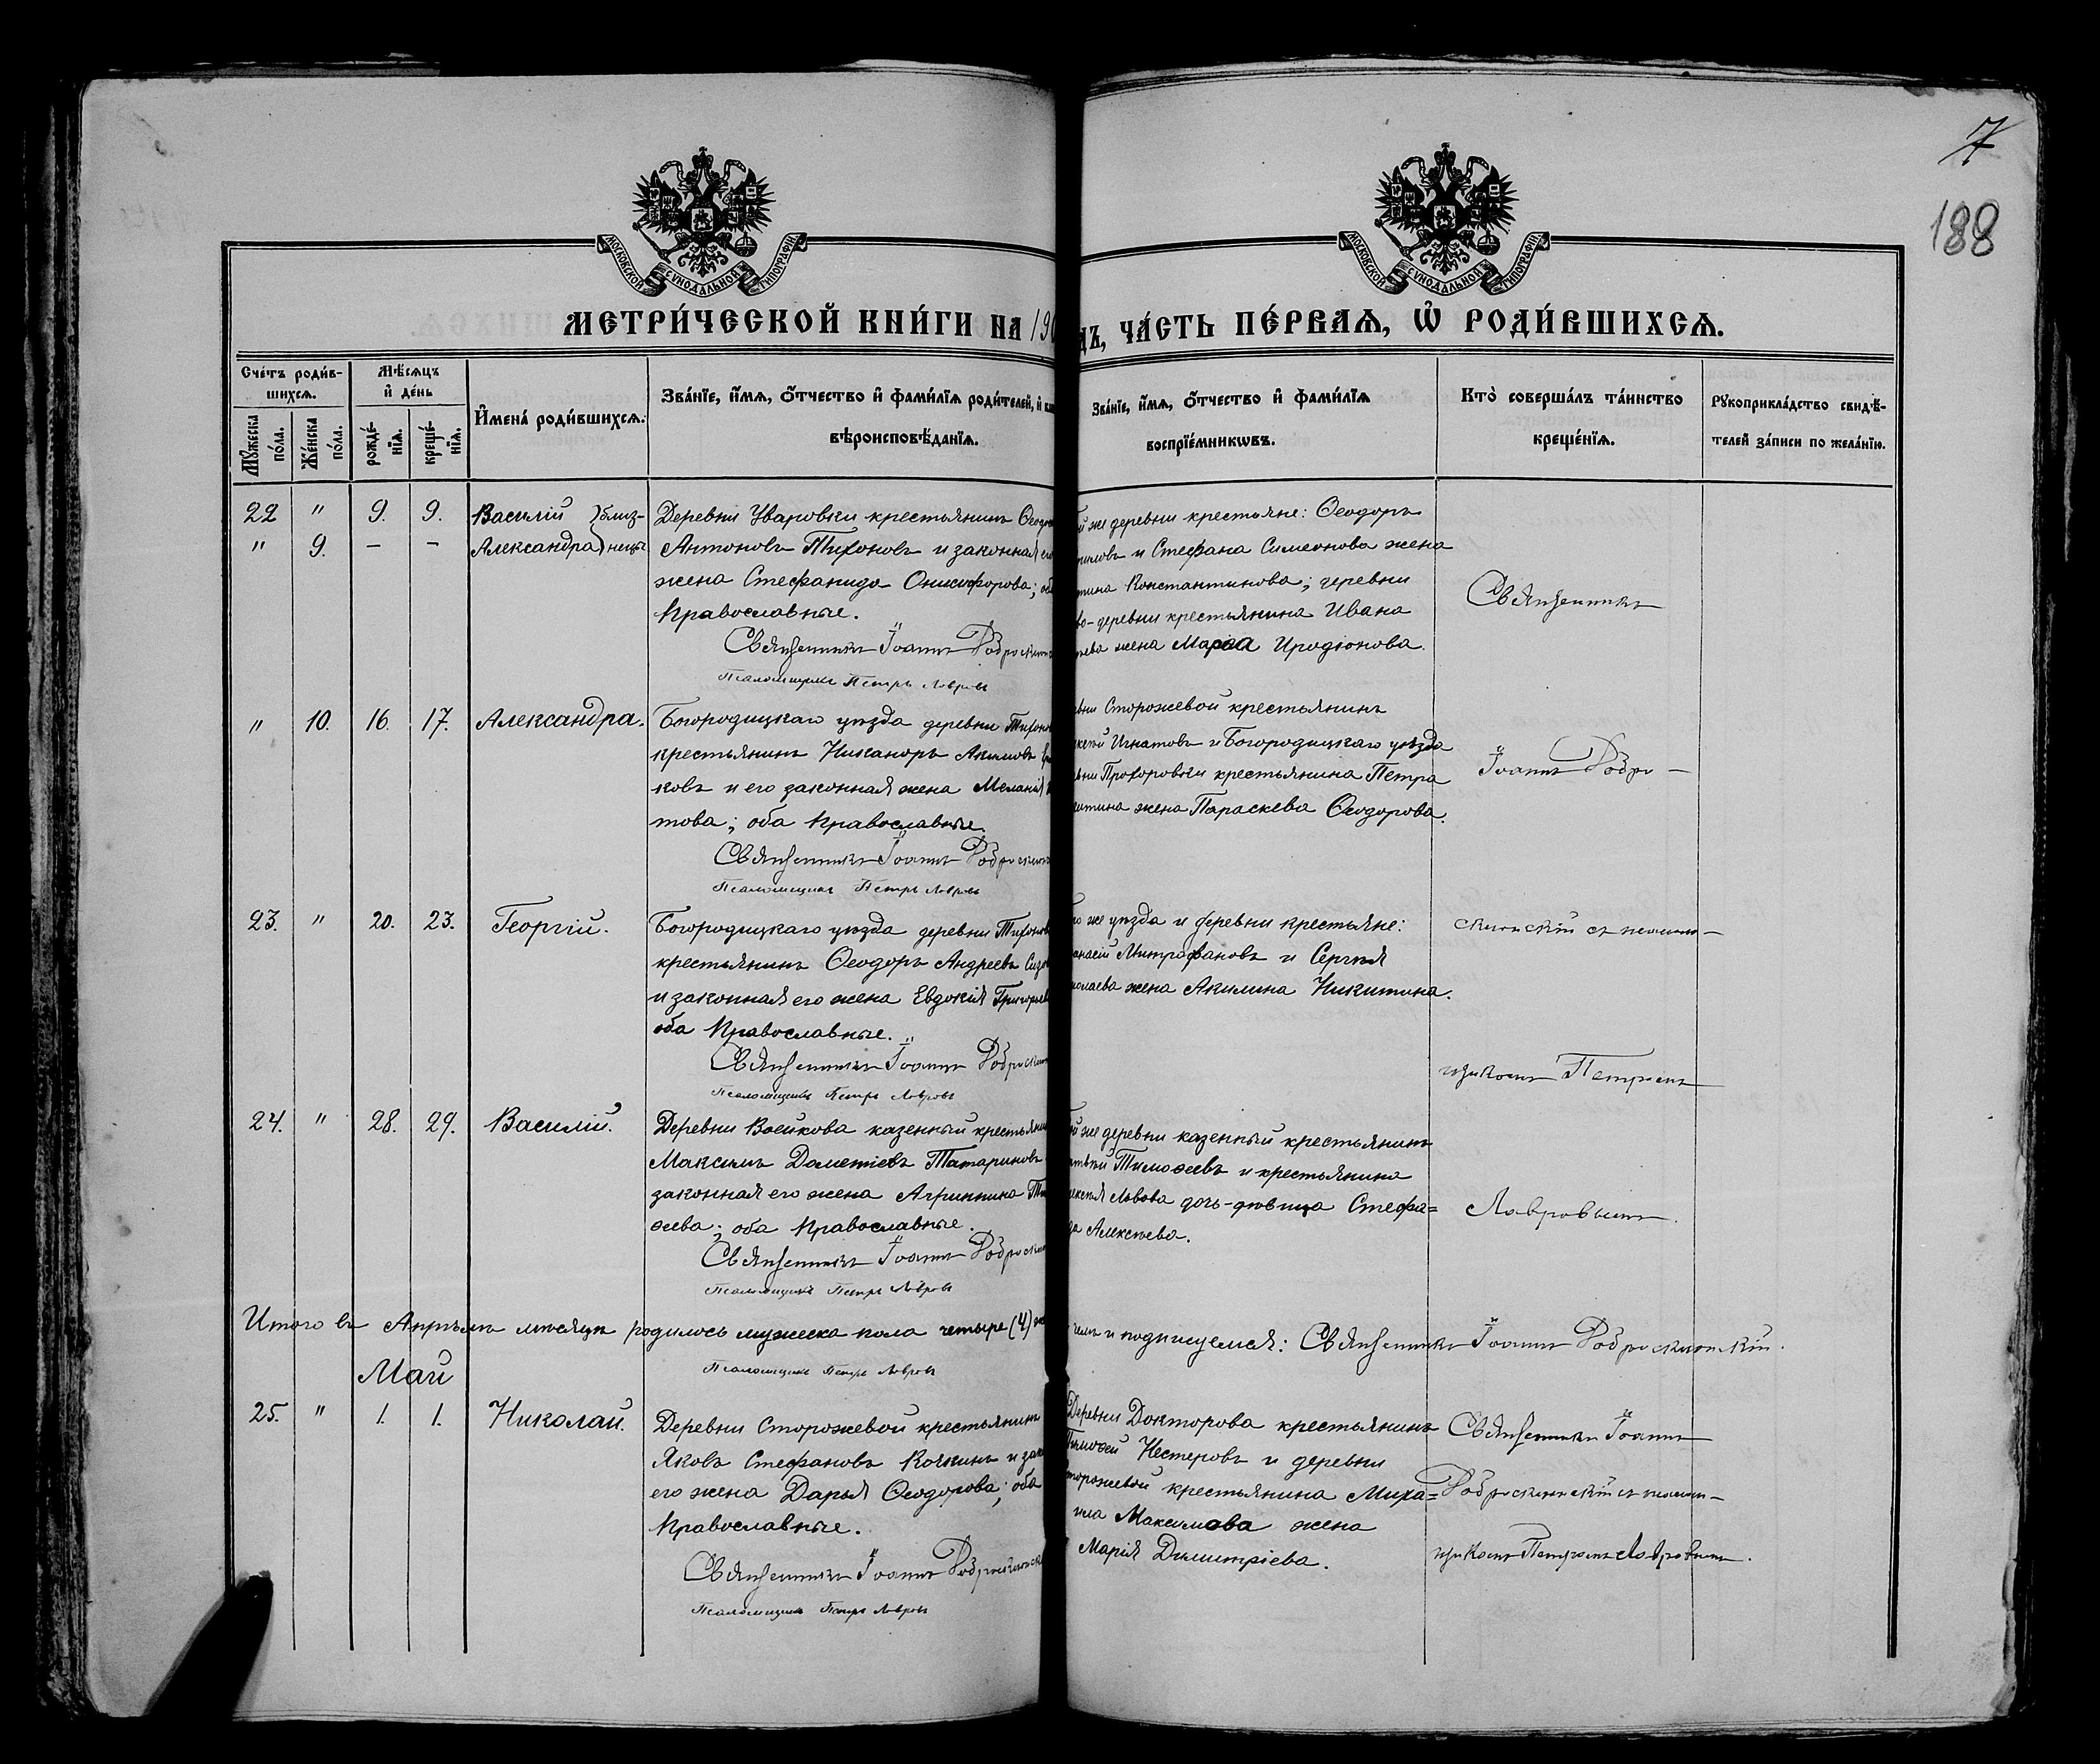 7
188
МОСКОВСКОЙ СѴНОДАЛЬНОЙ ТИПОГРАФІИ
МОСКОВСКОЙ СѴНОДАЛЬНОЙ ТИПОГРАФІИ
МЕТРИ́ЧЕСКОЙ КНИ́ГИ НА 190
ДЪ, ЧА́СТЬ ПЕ́РВАѦ, Ѡ҆ РОДИ́ВШИХСѦ.
Сче́тъ роди́в-
шихсѧ.
Мꙋ́жеска по́ла.
Же́нска по́ла.
Мѣ́сѧцъ
и҆ де́нь
рожде́-
нїѧ.
креще́-
нїѧ.
И҆мена̀ роди́вшихсѧ.
Зва́нїе, и҆́мѧ, ѻ҆́тчество и҆ фами́лїѧ роди́телей, и҆
вѣроисповѣ́данїѧ.
Зва́нїе, и҆́мѧ, ѻ҆́тчество и҆ фами́лїѧ
воспрїе́мникѡвъ.
Кто̀ соверша́лъ та́инство
креще́нїѧ.
Рꙋкоприкла́дство свидѣ́-
телей за́писи по жела́нїю.
22 " 9. 9. Василій ) близ-
" 9. – – Александра ) нецы
Деревни Уваровки крестьянинъ Ѳеодо
Антоновъ Тихоновъ и законная его
жена Стефанида Онисифорова; об
Православные.
Священникъ Іоаннъ Добросклон
Псаломщикъ Петръ Лавровъ
й же деревни крестьяне: Ѳеодоръ
риловъ и Стефана Симеонова жена
тина Константинова; деревни
во-деревни крестьянина Ивана
ева жена Марѳа Иродіонова.
Священникъ
" 10. 16. 17. Александра.
Богородицкаго уѣзда деревни Тихонов
крестьянинъ Никаноръ Акимовъ
ковъ и его законная жена Меланія
това; оба Православные.
Священникъ Іоаннъ Добросклон
Псаломщикъ Петръ Лавровъ
вни Сторожевой крестьянинъ
ксѣй Игнатовъ и Богородицкаго уѣзда
вни Прохоровки крестьянина Петра
итина жена Параскева Ѳеодорова.
Іоаннъ Добро-
23. " 20. 23. Георгій.
Богородицкаго уѣзда деревни Тихонов
крестьянинъ Ѳеодоръ Андреевъ Сизо
и законная его жена Евдокія Григорьев
оба Православные.
Священникъ Іоаннъ Доброскло
Псаломщикъ Петръ Лавровъ
го же уѣзда и деревни крестьяне:
анасій Митрофановъ и Сергѣя
иколаева жена Акилина Никитина.
склонскій съ псалом-
щикомъ Петромъ
24. " 28. 29. Василій.
Деревни Воейкова казенный крестьянин
Максимъ Дометіевъ Татариновъ
законная его жена Агриппина Ти
ѳеева; оба Православные.
Священникъ Іоаннъ Доброскло
Псаломщикъ Петръ Лавровъ
й же деревни казенный крестьянинъ
твѣй Тимоѳеевъ и крестьянина
лексѣя Львова дочь-дѣвица Стефа=
да Алексѣева.
Лавровымъ.
Итого въ Апрѣлѣ мѣсяцѣ родилось мужеска пола четыре (4)
чемъ и подписуемся: Священникъ Іоаннъ Добросклонскій.
Псаломщикъ Петръ Лавровъ
Май
25. " 1. 1. Николай.
Деревни Сторожевой крестьянинъ
Яковъ Стефановъ Кочкинъ и зак
его жена Дарья Ѳеодорова; оба
Православные.
Священникъ Іоаннъ Добросклонск
Псаломщикъ Петръ Лавровъ
Деревни Докторова крестьянинъ
Тимоѳей Нестеровъ и деревни
торожевой крестьянина Миха=
ила Максимова жена
Марія Димитріева.
Священникъ Іоаннъ
Добросклонскій съ псалом-
щикомъ Петромъ Лавровымъ.